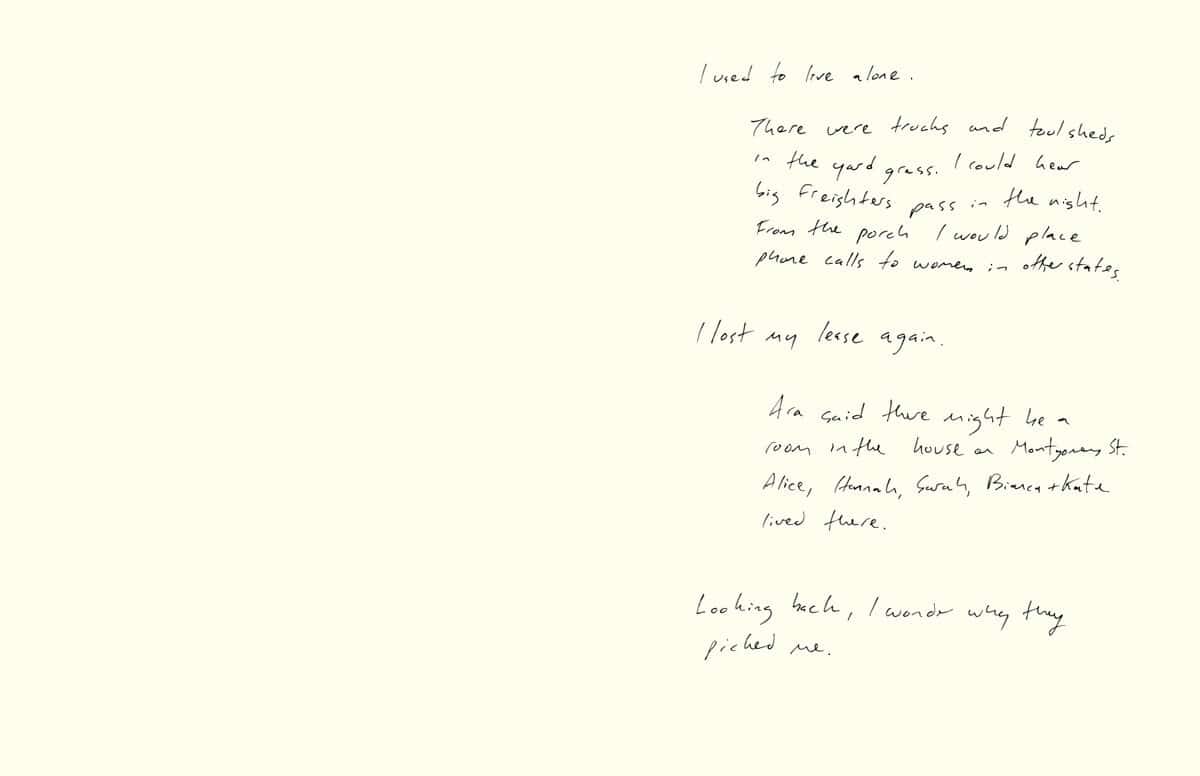 I used to live alone.
There were trucks and toolsheds
in the yard grass. I could hear
big freighters pass in the night.
From the porch I would place
phone calls to women in other states.
I lost my lease again.
Ara said there might be a
room in the house on Montgomery St.
Alice, Hannah, Sarah, Bianca + Kate
lived there.
Looking back, I wonder why they
picked me.